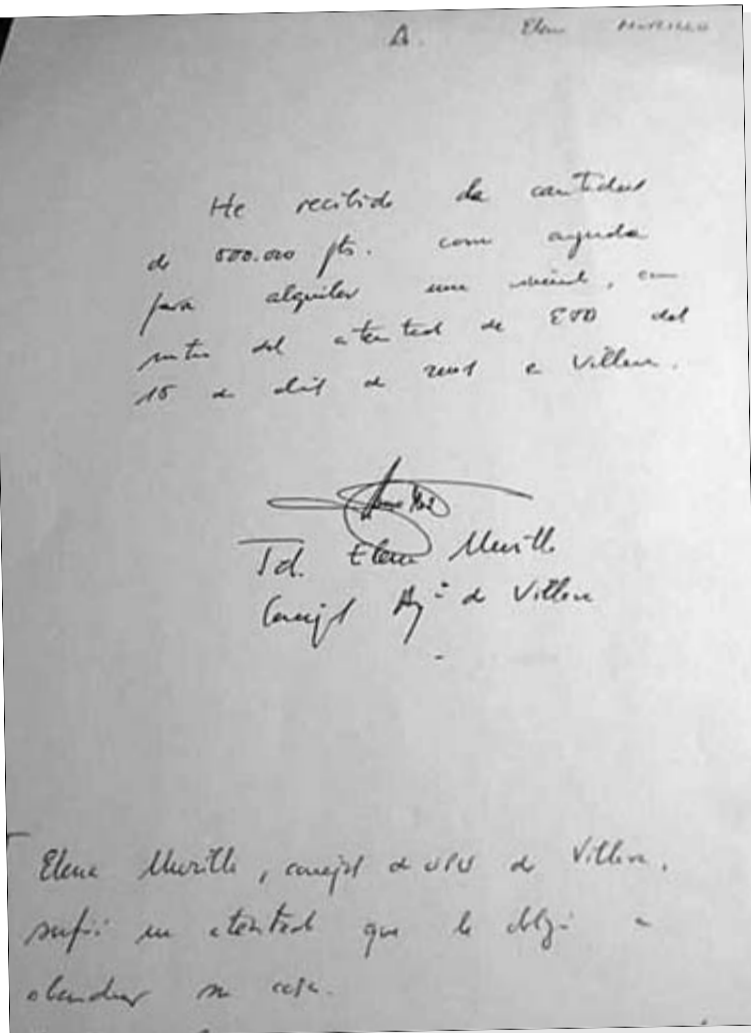 A. Elena MURILLO
He recibido la cantidad
de 500.000 pts. como ayuda
para alquilar una vivienda, en
del atentado de ETA del
15 de abril de 2001 en Villava.
Fd. Elena Murillo
Concejal Ayº de Villava
Elena Murillo, concejal de UPN de Villava,
sufrió un atentado que le obligó a
abandonar su casa.